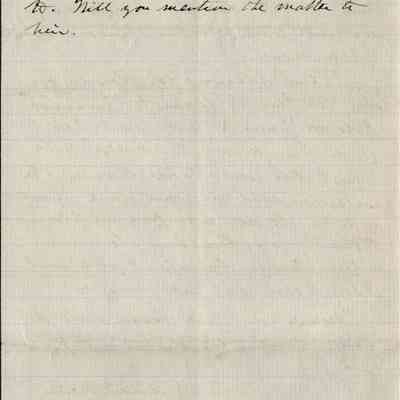 to. Will you mention the matter to
him.